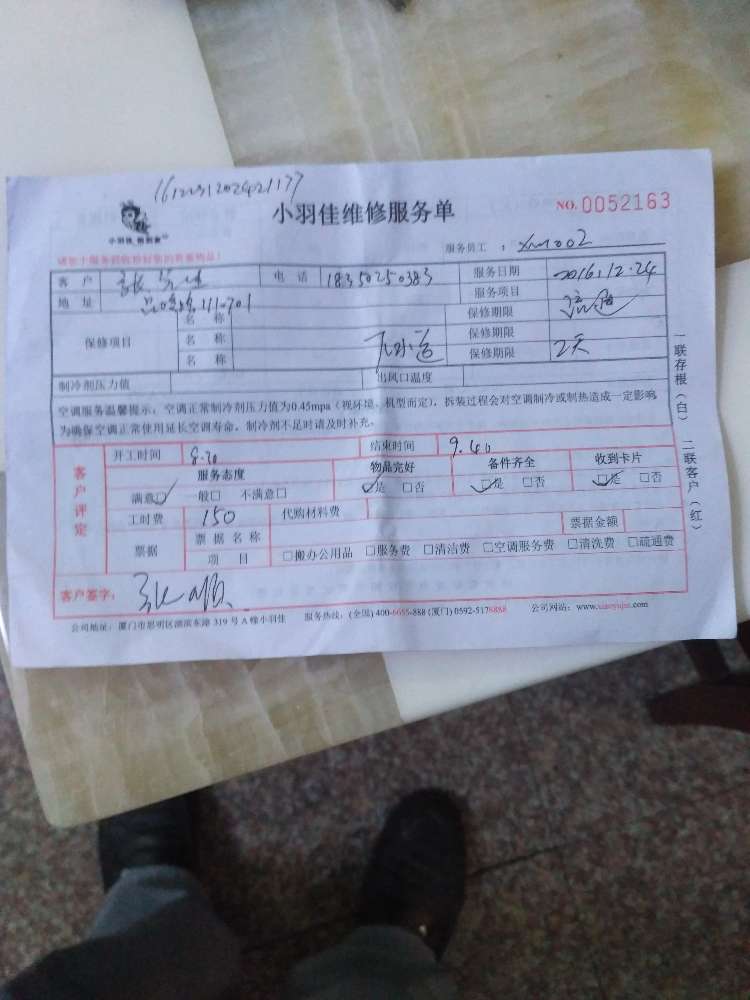 1612231202421177
小羽佳维修服务单
NO.0052163
服务员工：XM002
客户 张先生 电话 18350250383 服务日期 2016.12.24
地址 111-701 服务项目 疏通
保修项目 名称 保修期限
名称 保修期限
名称 保修期限 2天
制冷剂压力值 出风口温度
空调服务温馨提示：空调正常制冷剂压力值为0.45mpa（视环境、机型而定），拆装过程会对空调制冷或制热造成一定影响，
为确保空调正常使用延长空调寿命，制冷剂不足时请及时补充。
一联存根（白） 二联客户（红）
客户评定
开工时间 8.30 结束时间 9.40
服务态度 物品完好 备件齐全 收到卡片
满意☑ 一般□ 不满意□ ☑是 □否 ☑是 □否 ☑是 □否
工时费 150 代购材料费
票据 票据名称 票据金额
项目 □搬办公用品 □服务费 □清洁费 □空调服务费 □清洗费 □疏通费
客户签字：
公司地址：厦门市思明区湖滨东路319号A幢小羽佳 服务热线：(全国) 400-6655-888 (厦门) 0592-5178888 公司网站：www.xiaoyujia.com